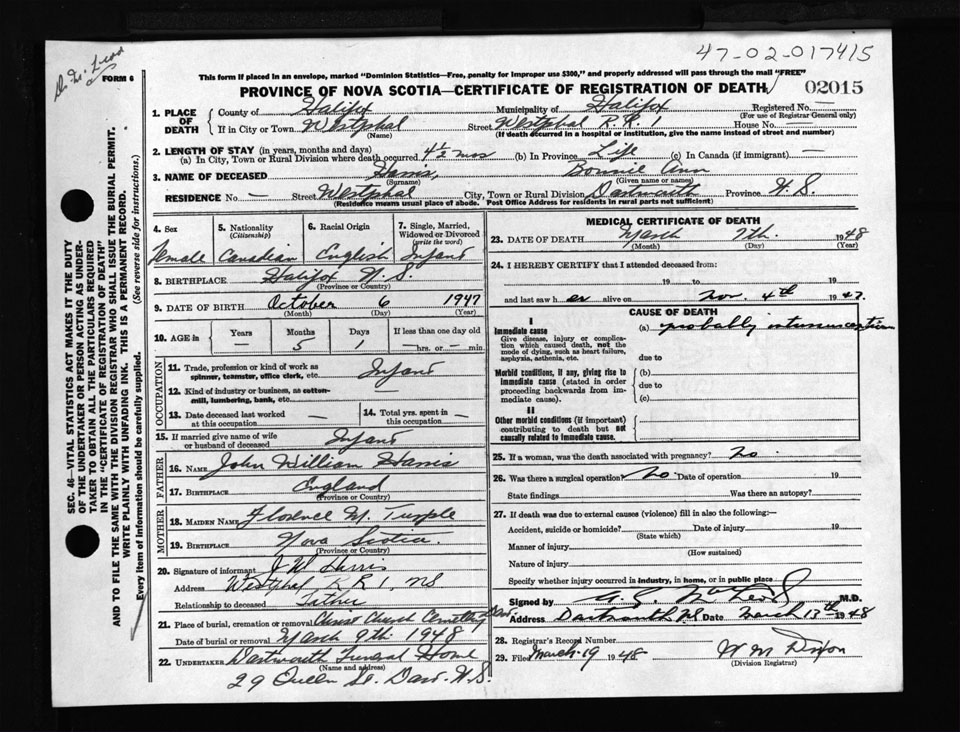 47-02-017415
FORM 6
This form if placed in an envelope, marked "Dominion Statistics—Free, penalty for improper use $300," and properly addressed will pass through the mail "FREE"
PROVINCE OF NOVA SCOTIA—CERTIFICATE OF REGISTRATION OF DEATH 02015
1. PLACE OF DEATH
County of Halifax Municipality of Halifax Registered No. —
(For use of Registrar General only)
If in City or Town Westphal Street Westphal R.R. 1 House No. —
(Name) (If death occurred in a hospital or institution, give the name instead of street and number)
2. LENGTH OF STAY (in years, months and days)
(a) In City, Town or Rural Division where death occurred 4½ mos (b) In Province Life (c) In Canada (if immigrant) —
3. NAME OF DECEASED Harris, Bonnie Ann
(Surname) (Given name or names)
RESIDENCE No. — Street Westphal City, Town or Rural Division Dartmouth Province N.S.
(Residence means usual place of abode. Post Office Address for residents in rural parts not sufficient)
4. Sex 5. Nationality (Citizenship) 6. Racial Origin 7. Single, Married, Widowed or Divorced (write the word)
Female Canadian English Infant
8. BIRTHPLACE Halifax N.S.
(Province or Country)
9. DATE OF BIRTH October 6 1947
(Month) (Day) (Year)
10. AGE in Years Months Days If less than one day old
— 5 1 — hrs. or — min.
OCCUPATION
11. Trade, profession or kind of work as spinner, teamster, office clerk, etc. Infant
12. Kind of industry or business, as cotton-mill, lumbering, bank, etc.
13. Date deceased last worked at this occupation — 14. Total yrs. spent in this occupation —
15. If married give name of wife or husband of deceased Infant
FATHER
16. NAME John William Harris
17. BIRTHPLACE England
(Province or Country)
MOTHER
18. MAIDEN NAME Florence M. Turple
19. BIRTHPLACE Nova Scotia
(Province or Country)
20. Signature of informant J W Harris
Address Westphal R R 1, NS
Relationship to deceased Father
21. Place of burial, cremation or removal Christ Church Cemetery Dart.
Date of burial or removal March 9th 1948
22. UNDERTAKER Dartmouth Funeral Home
(Name and address)
29 Queen St. Dart. N.S.
MEDICAL CERTIFICATE OF DEATH
23. DATE OF DEATH March 7th. 1948
(Month) (Day) (Year)
24. I HEREBY CERTIFY that I attended deceased from:
19 to 19
and last saw h er alive on Nov. 4th 1947.
CAUSE OF DEATH
I
Immediate cause (a) probably intussusception
Give disease, injury or complication which caused death, not the mode of dying, such as heart failure, asphyxia, asthenia, etc.
due to
Morbid conditions, if any, giving rise to immediate cause (stated in order proceeding backwards from immediate cause).
(b)
due to
(c)
II
Other morbid conditions (if important) contributing to death but not causally related to immediate cause.
25. If a woman, was the death associated with pregnancy? No.
26. Was there a surgical operation? No. Date of operation 19
State findings Was there an autopsy?
27. If death was due to external causes (violence) fill in also the following:—
Accident, suicide or homicide? Date of injury 19
(State which)
Manner of injury
(How sustained)
Nature of injury
Specify whether injury occurred in industry, in home, or in public place
Signed by M.D.
Address Dartmouth NS Date March 13th 1948
28. Registrar's Record Number
29. Filed March 19 1948 W M Dixon
(Division Registrar)
SEC. 46—VITAL STATISTICS ACT MAKES IT THE DUTY
OF THE UNDERTAKER OR PERSON ACTING AS UNDERTAKER TO OBTAIN ALL THE PARTICULARS REQUIRED
IN THE "CERTIFICATE OF REGISTRATION OF DEATH"
AND TO FILE THE SAME WITH THE DIVISION REGISTRAR WHO SHALL ISSUE THE BURIAL PERMIT.
WRITE PLAINLY WITH UNFADING INK. THIS IS A PERMANENT RECORD.
Every item of information should be carefully supplied. (See reverse side for instructions.)